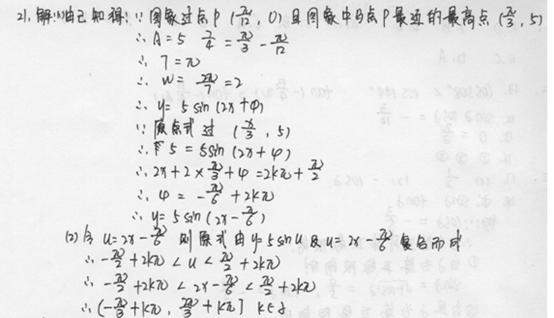 21.解:(1)由已知得:∵图象过点P(π/12, 0)且图象中与点P最近的最高点(π/3, 5)
∴A=5 T/4=π/3-π/12
∴T=π
∴w=2π/π=2
∴y=5sin(2x+φ)
∵原点式过(π/3, 5)
∴5=5sin(2x+φ)
∴2x+2×π/3+φ=2kπ+π/2
∴φ=-π/6+2kπ
∴y=5sin(2x-π/6)
(2)令u=2x-π/6 则原式由y=5sinu及u=2x-π/6复合而成
∴-π/2+2kπ<u<π/2+2kπ
∴-π/2+2kπ<2x-π/6<π/2+2kπ
∴(-π/3+kπ, π/3+kπ] k∈z